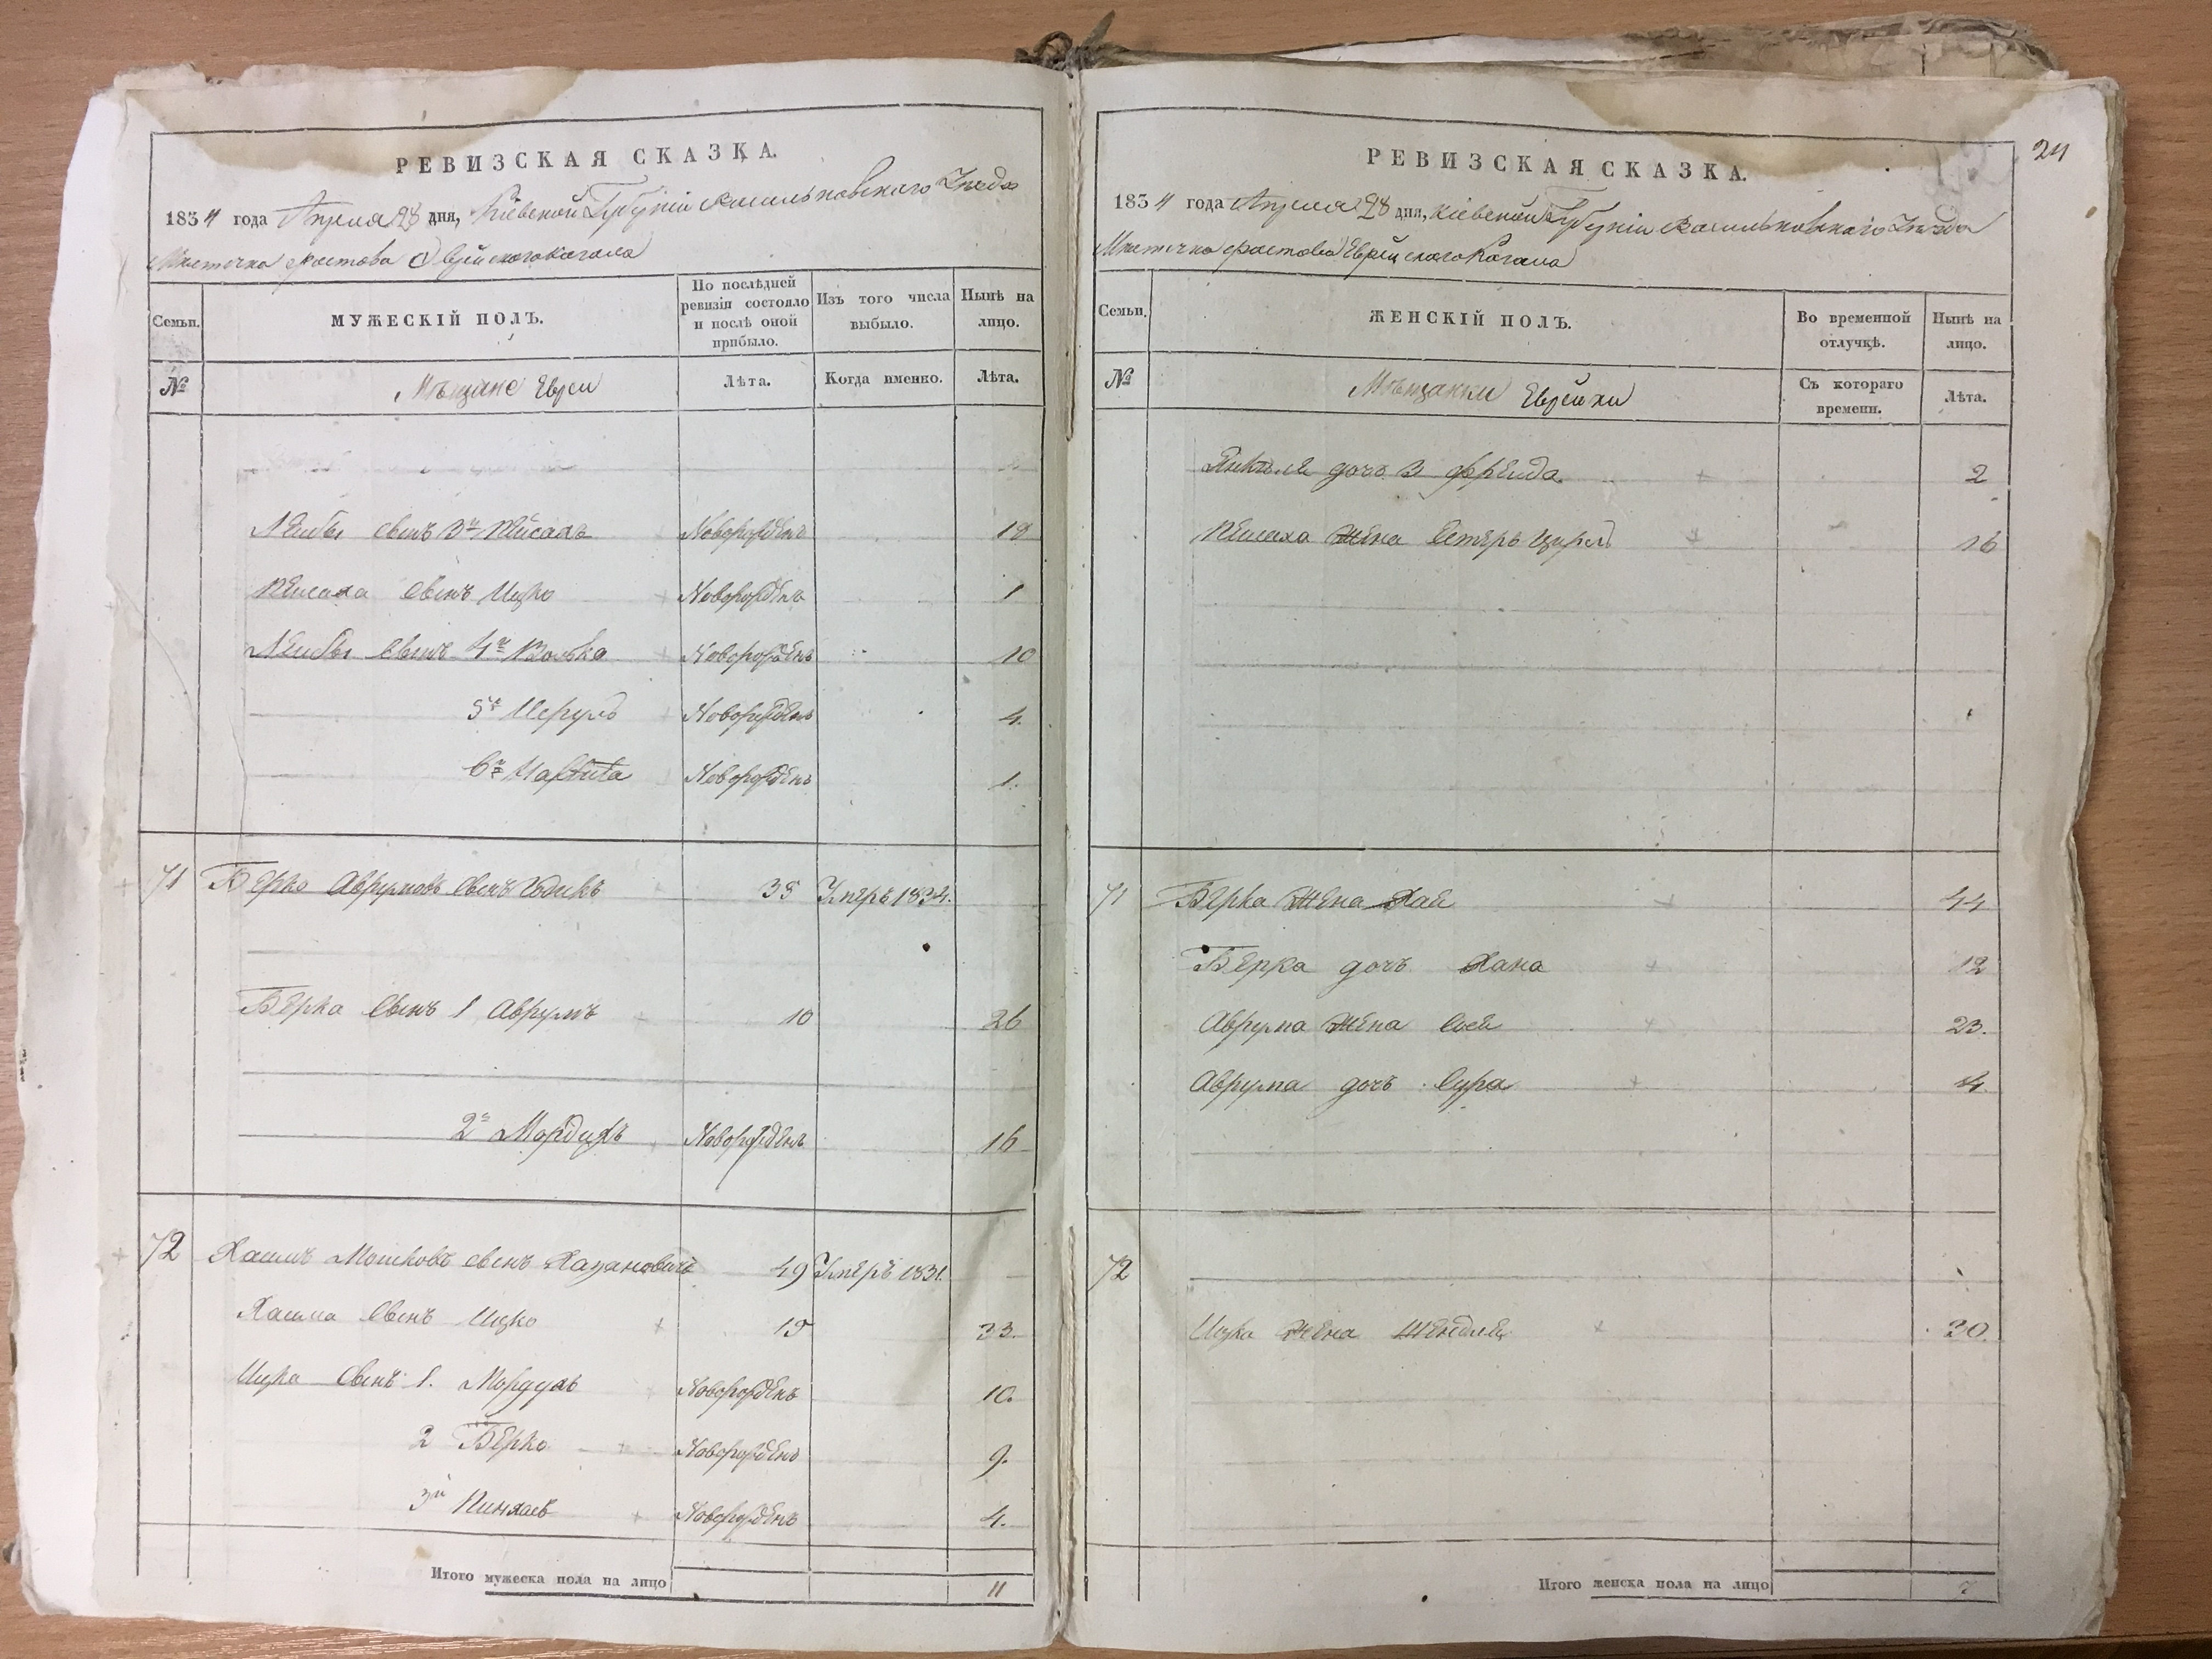 РЕВИЗСКАЯ СКАЗКА.
1834 года Апреля 28 дня, Кіевской Губерніи Васильковскаго Уезда
Местечка Фастова Еврейского Кагала
Семьи.
МУЖЕСКІЙ ПОЛЪ.
По послѣдней ревизіи состояло и послѣ оной прибыло.
Изъ того числа выбыло.
Нынѣ на лицо.
№
Мѣщане Евреи
Лѣта.
Когда именно.
Лѣта.
Лейбы сынъ 3й Пейсахъ Новорожденъ 19
Пейсаха сынъ Ицко Новорожденъ 1
Лейбы сынъ 4й Волько Новорожденъ 10
5й Новорожденъ 4.
6й Новорожденъ 1.
71 Берко Аврумовъ сынъ 35 Умеръ 1834.
Берка сынъ 1 Аврумъ 10 26
2й Мордухъ Новорожденъ 16
72 Хаимъ Мошковъ сынъ Хазановичъ 49 Умеръ 1831.
Хаима сынъ Ицко 19 33.
Ицка сынъ 1. Мордухъ Новорожденъ 10.
2 Берко Новорожденъ 9.
3й Пинхасъ Новорожденъ 4.
Итого мужеска пола на лицо 11
24
РЕВИЗСКАЯ СКАЗКА.
1834 года Апреля 28 дня, Кіевской Губерніи Васильковскаго Уезда
Местечка Фастова Еврейского Кагала
Семьи.
ЖЕНСКІЙ ПОЛЪ.
Во временной отлучкѣ.
Нынѣ на лицо.
№
Мѣщанки Еврейки
Съ котораго времени.
Лѣта.
дочь 3 Фрейда 2
Пейсаха жена Естеръ 16
71 Берка жена Хая 44
Берка дочь Хана 12
Аврума жена 23.
Аврума дочь Сура 4.
72
Ицка жена Шендля 30.
Итого женска пола на лицо 7